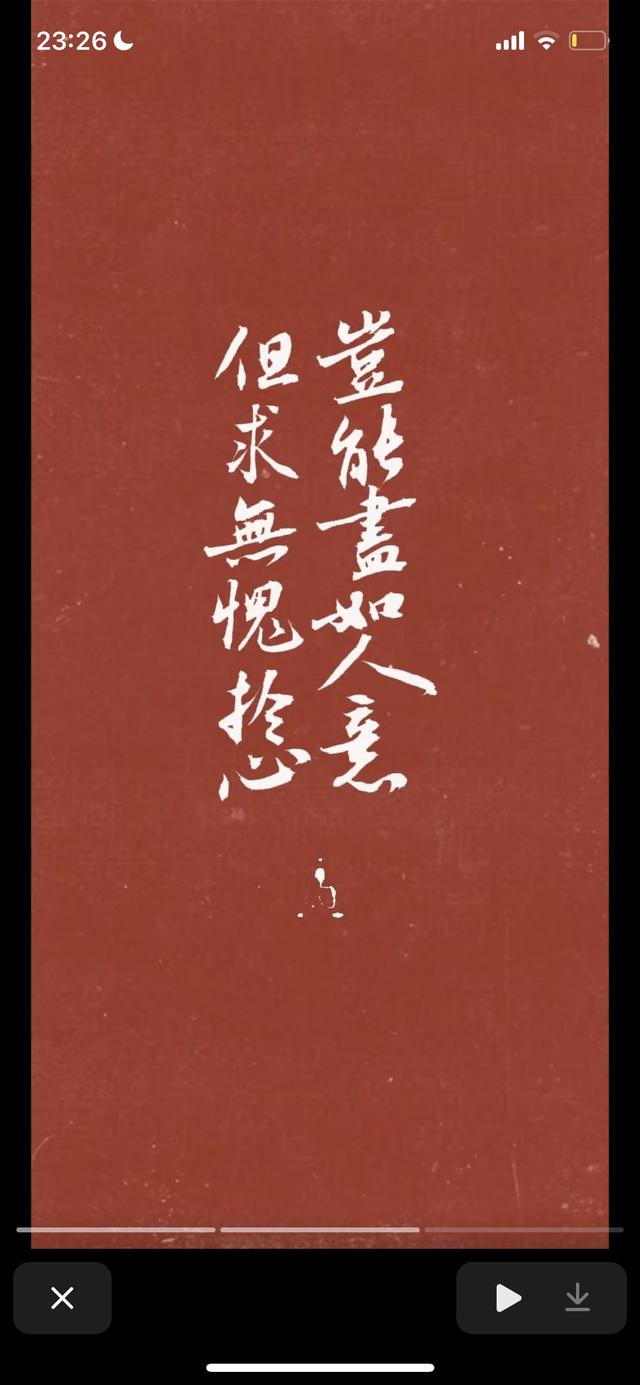 23:26
豈能盡如人意
但求無愧扵心